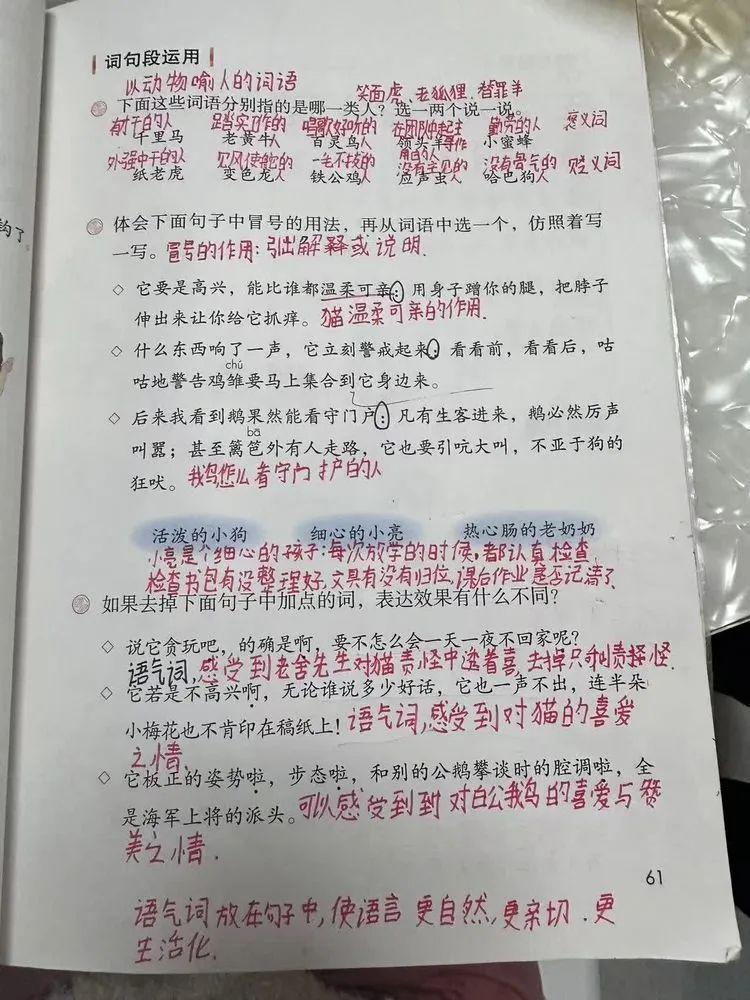 词句段运用
以动物喻人的词语
笑面虎、老狐狸、替罪羊
下面这些词语分别指的是哪一类人？选一两个说一说。
有才干的人 踏实工作的 唱歌好听的 在团队中起主 勤劳的人 褒义词
千里马 老黄牛人 百灵鸟人 领头羊导作 小蜜蜂
外强中干的人 见风使舵的 一毛不拔的 用的人 没有主见的 没有骨气的 贬义词
纸老虎 变色龙人 铁公鸡人 应声虫人 哈巴狗人
钩了。
体会下面句子中冒号的用法，再从词语中选一个，仿照着写
一写。冒号的作用：引出解释或说明.
它要是高兴，能比谁都温柔可亲：用身子蹭你的腿，把脖子
伸出来让你给它抓痒。猫温柔可亲的作用.
什么东西响了一声，它立刻警戒起来：看看前，看看后，咕
chú
咕地警告鸡雏要马上集合到它身边来。
后来我看到鹅果然能看守门户：凡有生客进来，鹅必然厉声
bā
叫嚣；甚至篱笆外有人走路，它也要引吭大叫，不亚于狗的
狂吠。鹅怎么看守门户的人
活泼的小狗 细心的小亮 热心肠的老奶奶
小亮是个细心的孩子：每次放学的时候，都认真检查
检查书包有没整理好，文具有没有归位，课后作业是否记清了.
如果去掉下面句子中加点的词，表达效果有什么不同？
说它贪玩吧，的确是啊，要不怎么会一天一夜不回家呢？
语气词，感受到老舍先生对猫责怪中透着喜，去掉只剩责怪.
它若是不高兴啊，无论谁说多少好话，它也一声不出，连半朵
小梅花也不肯印在稿纸上！语气词，感受到对猫的喜爱
之情.
它板正的姿势啦，步态啦，和别的公鹅攀谈时的腔调啦，全
是海军上将的派头。可以感受到到对白公鹅的喜爱与赞
美之情.
61
语气词放在句子中，使语言更自然，更亲切.更
生活化.